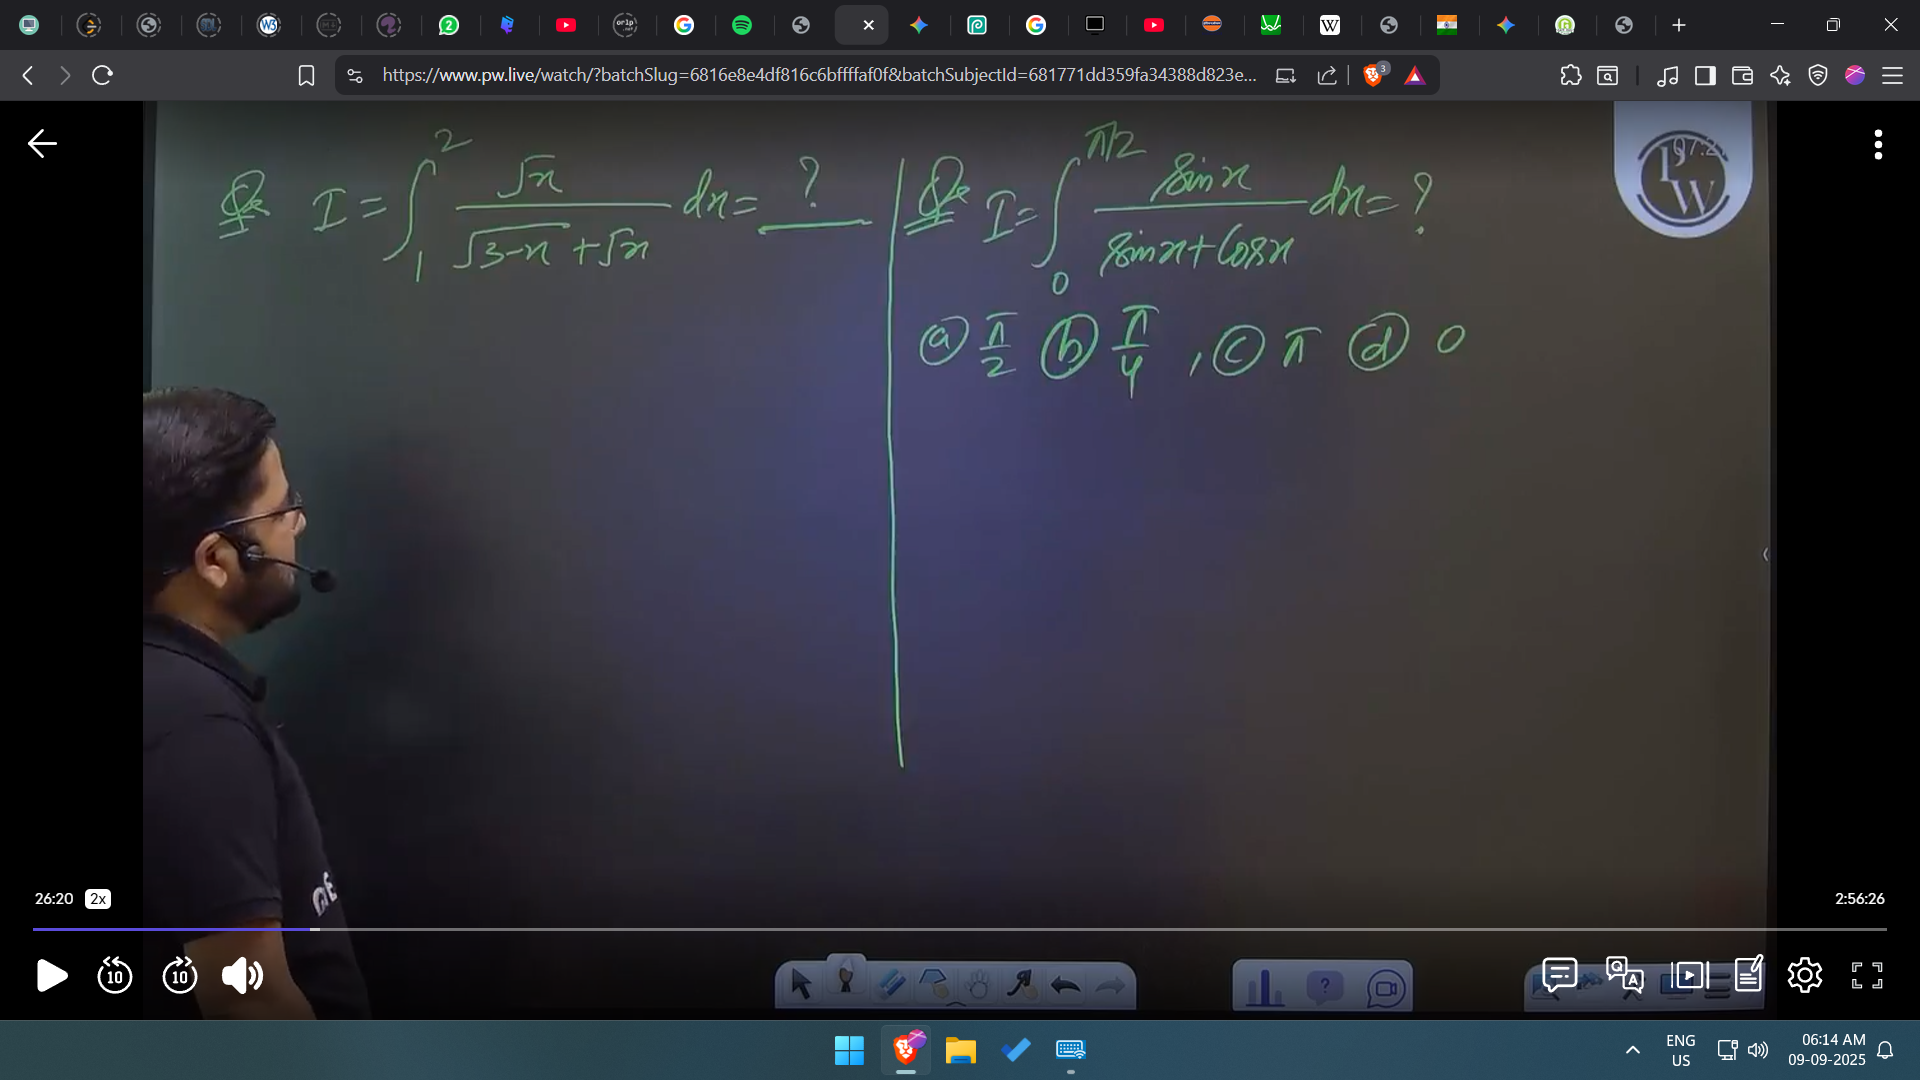 https://www.pw.live/watch/?batchSlug=6816e8e4df816c6bffffaf0f&batchSubjectId=681771dd359fa34388d823e...
3
Q. I = ∫₁² √x / (√(3-x) + √x) dx = ?
Q. I = ∫₀^(π/2) sinx / (sinx + cosx) dx = ?
ⓐ π/2 ⓑ π/4 , ⓒ π ⓓ 0
PW
26:20 2x
2:56:26
10 10
ENG
US
06:14 AM
09-09-2025